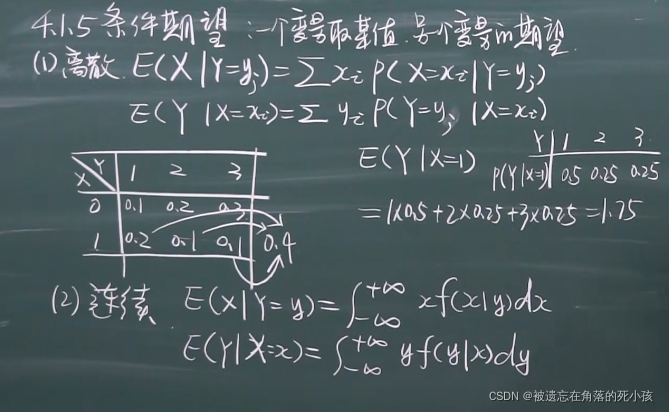 4.1.5 条件期望：一个变量取某值.另个变量的期望.
(1)离散. E(X|Y=yj)=∑xi P(X=xi|Y=yj)
E(Y|X=xi)=∑ yi P(Y=yj |X=xi)
X Y 1 2 3
0 0.1 0.2 0.3
1 0.2 0.1 0.1 0.4
E(Y|X=1)
Y 1 2 3
P(Y|X=1) 0.5 0.25 0.25
=1×0.5+2×0.25+3×0.25=1.75
(2)连续. E(X|Y=y)=∫_{-∞}^{+∞} xf(x|y)dx
E(Y|X=x)=∫_{-∞}^{+∞} yf(y|x)dy
CSDN @被遗忘在角落的死小孩